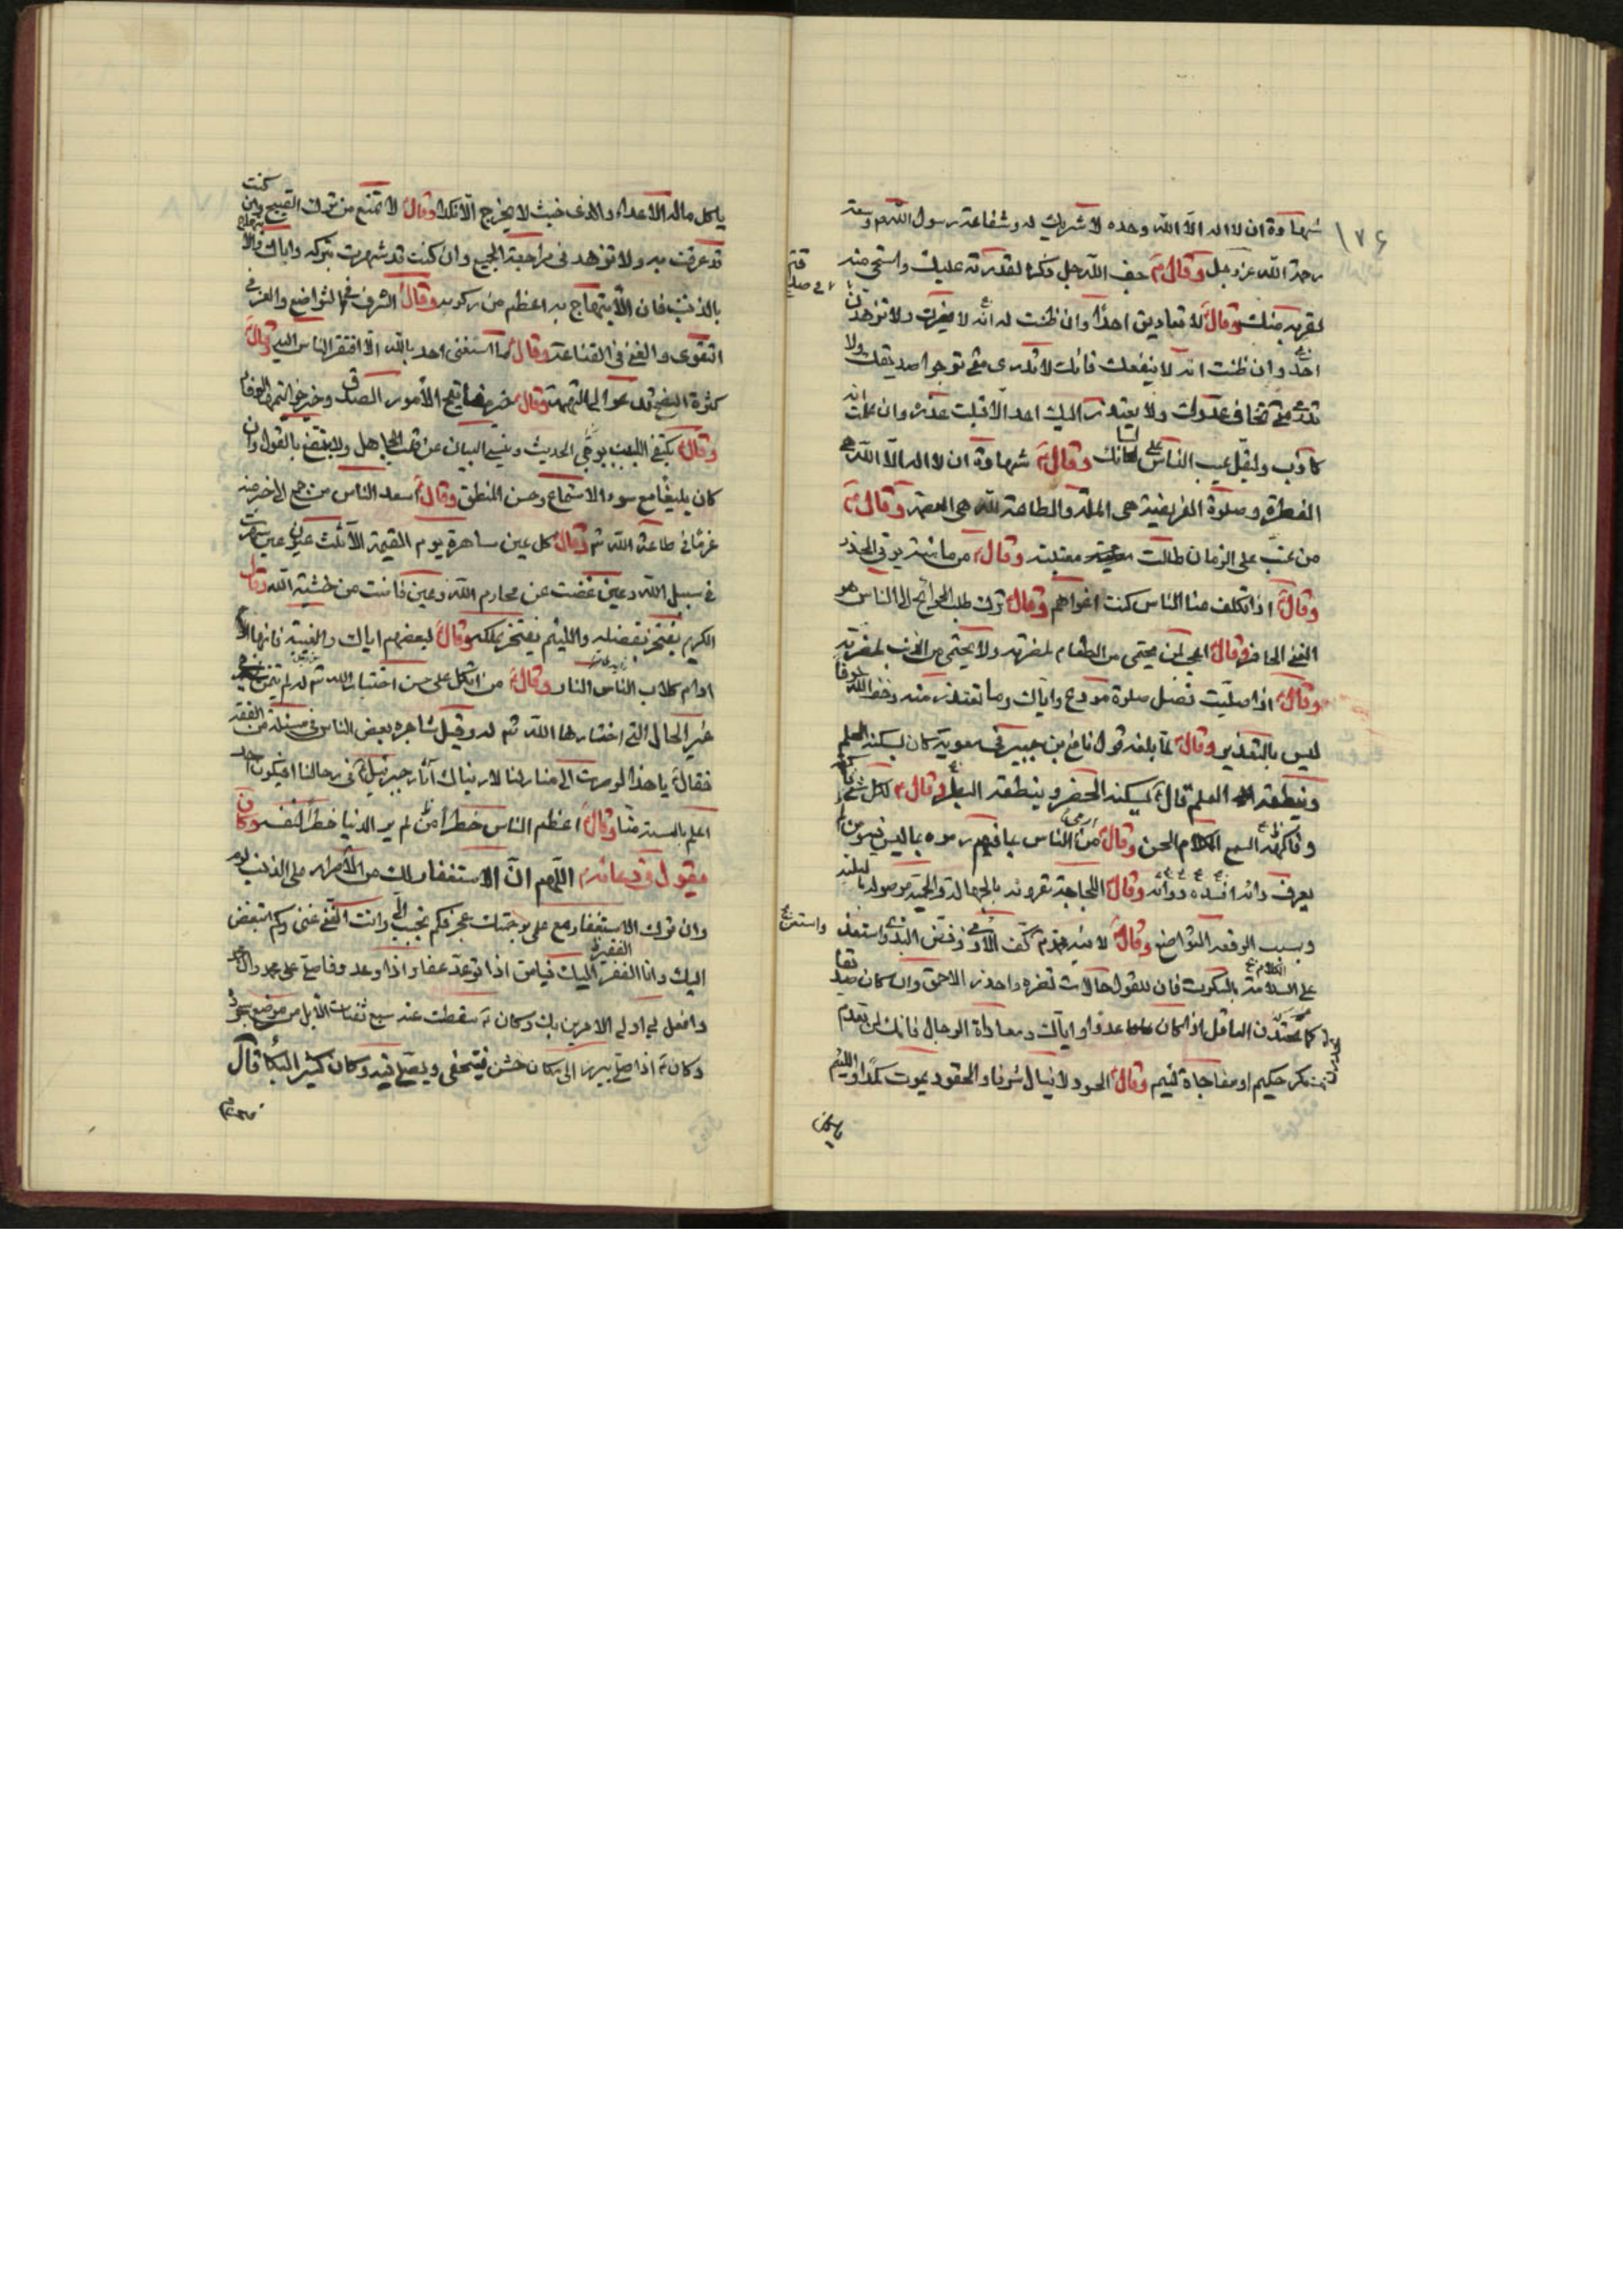 ١٧٤
شهادة ان لا اله الا الله وحده لا شريك له وشفاعة رسول الله ص وسعة
رحمة الله عز وجل وقال ع خف الله جل ذكره لقدرته عليك واستحي منه
لقربه منك وقال ع لا تعادين احدا وان ظننت انه لا يضرك ولا تزهدن
احد وان ظننت انه لا ينفعك فانك لا تدرى متى ترجوا صديقك ولا
تدرى متى تخاف عدوك ولا يعتذر اليك احد الا قبلت عذره وان علمت انه
كاذب وليقل عيب الناس على لسانك وقال ع شهادة ان لا اله الا الله هى
الفطرة وصلوة الفريضة هى الملة والطاعة لله هى العصمة وقال ع
من عتب على الزمان طالت معتبته وقال ع من مأمنه يؤتى الحذر
وقال ع اذا تكلف عناء الناس كنت اغواهم وقال ع ترك طلب الحوائج الى الناس هو
الغنى الحاضر وقال ع عجبت لمن يحتمى من الطعام لمضرته ولا يحتمى من الذنب لمعرته
وقال ع اذا صليت فصل صلوة مودع واياك وما تعتذر منه وخف الله خوفا
ليس بالتعذير وقال ع لما بلغه قول نافع بن جبير فى معوية كان يسكته الحلم
وينطقه العلم قال ع كان يسكته الحصر وينطقه البطر وقال ع لكل شئ فاكهة
وفاكهة السمع الكلام الحسن وقال ع من رمى الناس بما فيهم رموه بما ليس فيه ومن لم
يعرف داءه افسده دواؤه وقال ع اللجاجة مقرونة بالجهالة والحمية موصولة بالبلية
وسبب الرفعة التواضع وقال ع لابنه محمد ع كف الاذى وفض الندى واستعن
على السلامة بالسكوت فان للقول حالات تضره واحذر الاحمق وان كان صديقا
كما تحذر العاقل اذا كان عدوا واياك ومعاداة الرجال فانك لن تعدم
مكر حكيم او مفاجاة لئيم وقال ع الحسود لا ينال شرفا والحقود يموت كمدا واللئيم
ياكل
ياكل ماله الاعداء والذى خبث لا يخرج الا نكدا وقال ع لا تمتنع من ترك القبيح وان كنت
قد عرفت به ولا تزهد فى مراجعة الجميع وان كنت قد شهرت بتركه واياك والابتهاج
بالذنب فان الابتهاج به اعظم من ركوبه وقال ع الشرف فى التواضع والعز فى
التقوى والغنى فى القناعة وقال ع ما استغنى احد بالله الا افتقر الناس اليه وقال ع
كثرة النصح تدعو الى التهمة وقال ع خير مفاتيح الامور الصدق وخير خواتمها الوفاء
وقال ع يكتفى اللبيب بوحى الحديث وينبو البيان عن قلب الجاهل ولا ينتفع بالقول وان
كان بليغا مع سوء الاستماع وحسن المنطق وقال ع اسعد الناس من جمع الى
فى طاعة الله تع وقال ع كل عين ساهرة يوم القيمة الا ثلث عيون عين سهرت
فى سبيل الله وعين غضت عن محارم الله وعين فاضت من خشية الله وقال
الكريم يفتخر بفضله واللئيم يفتخر بملكه وقال ع لبعضهم اياك والغيبة فانها
ادام كلاب الناس النار وقال ع من اتكل على حسن اختيار الله تع له لم يتمن
غير الحال التى اختارها الله تع له وقيل شاجره بعض الناس فى مسئلة من الفقه
فقال ع يا هذا لو صرت الى منازلنا لاريناك آثار جبرئيل ع فى رحالنا افيكون احد
اعلم بالسنة منا وقال ع اعظم الناس خطرا من لم ير الدنيا خطرا لنفسه وكان
يقول فى دعائه ع اللهم ان الاستغفار لك من الاصرار على الذنب لؤم
وان ترك الاستغفار مع علمى برحمتك عجز فكم تحبب الى وانت الغنى عنى وكم اتبغض
اليك وانا الفقير اليك فيا من اذا توعد عفا واذا وعد وفا صل على محمد وال محمد
وافعل بى اولى الامرين بك وكان ع سقطت عنه سبع ثفنات الابل من موضع سجوده
وكان ع اذا صلى يبرز الى مكان خشن فيتخفى ويصلى فيه وكان كثير البكاء قال